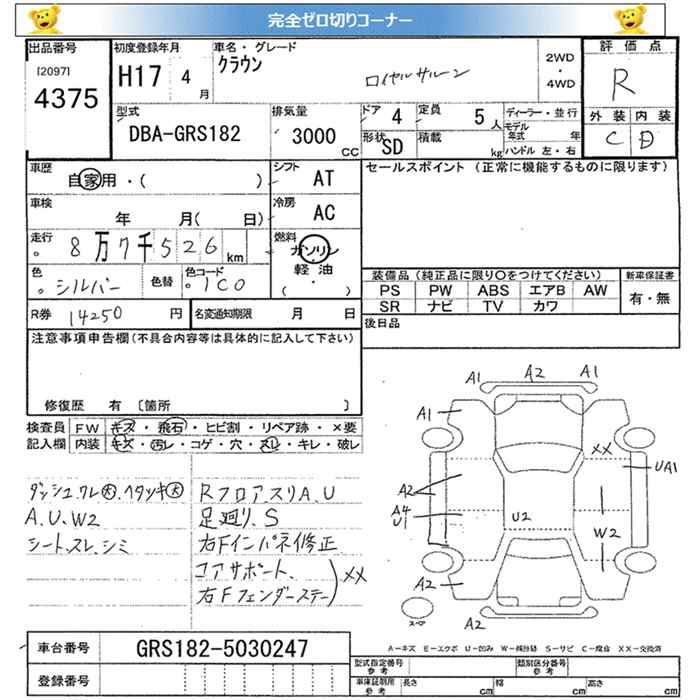 完全ゼロ切りコーナー
出品番号 初度登録年月 車名・グレード 評価点
[2097] クラウン ロイヤルサルーン 2WD・4WD
4375 H17 4月 R
型式 排気量 ドア 4 定員 5人 ディーラー・並行 外装 内装
DBA-GRS182 3000cc 形状 SD 積載 kg モデル年式 年 C D
ハンドル 左・右
車歴 自家用・( ) シフト AT セールスポイント (正常に機能するものに限ります)
車検 年 月( 日) 冷房 AC
走行 8万7千526km 燃料 ガソリン・軽油( ・ )
色 シルバー 色替 色コード 1C0 装備品(純正品に限り○をつけてください) 新車保証書
PS PW ABS エアB AW 有・無
R券 14250円 名変通知期限 月 日 SR ナビ TV カワ
注意事項申告欄(不具合内容等は具体的に記入して下さい) 後日品
修復歴 有 〔箇所 〕
検査員 FW キズ・飛石・ヒビ割・リペア跡・×要
記入欄 内装 キズ・汚レ・コゲ・穴・スレ・キレ・破レ
ダッシュワレ大、ヘタツキ大 RフロアスリA、U
A、U、W2 足廻り、S
シートスレ、シミ 右Fインパネ修正
コアサポート、
右Fフェンダーステー) XX
A1 A2 A1
A1
XX
UA1
A2
A4
U1 U2 W2
A2
スペア A2
A-キズ E-エクボ U-凹み W-補修跡 S-サビ C-腐食 XX-交換済
車台番号 GRS182-5030247
型式指定番号 参考 類別区分番号 参考
登録番号 車庫証明用 参考 長さ cm 幅 cm 高さ cm